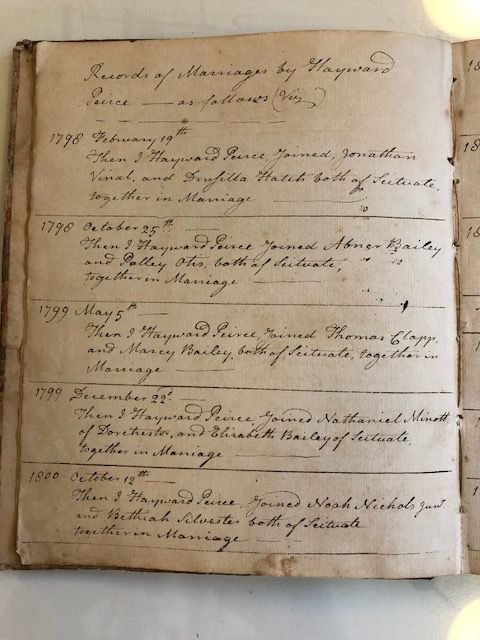 Records of Marriages by Hayward
Peirce — as follows (Viz)
1798 February 19th
Then I Hayward Peirce, Joined, Jonathan
Vinal, and Drusilla Hatch both of Scituate,
together in Marriage
1798 October 25th
Then I Hayward Peirce Joined Abner Bailey
and Polley Otis, both of Scituate,
together in Marriage
1799 May 5th
Then I Hayward Peirce, Joined Thomas Clapp
and Marcy Bailey, both of Scituate, together in
Marriage
1799 December 22d
Then I Hayward Peirce Joined Nathaniel Minott
of Dorchester, and Elizabeth Bailey of Scituate,
together in Marriage
1800 October 12th
Then I Hayward Peirce, Joined Noah Nichols Junr.
and Bethiah Silvester both of Scituate
together in Marriage
18
18
18